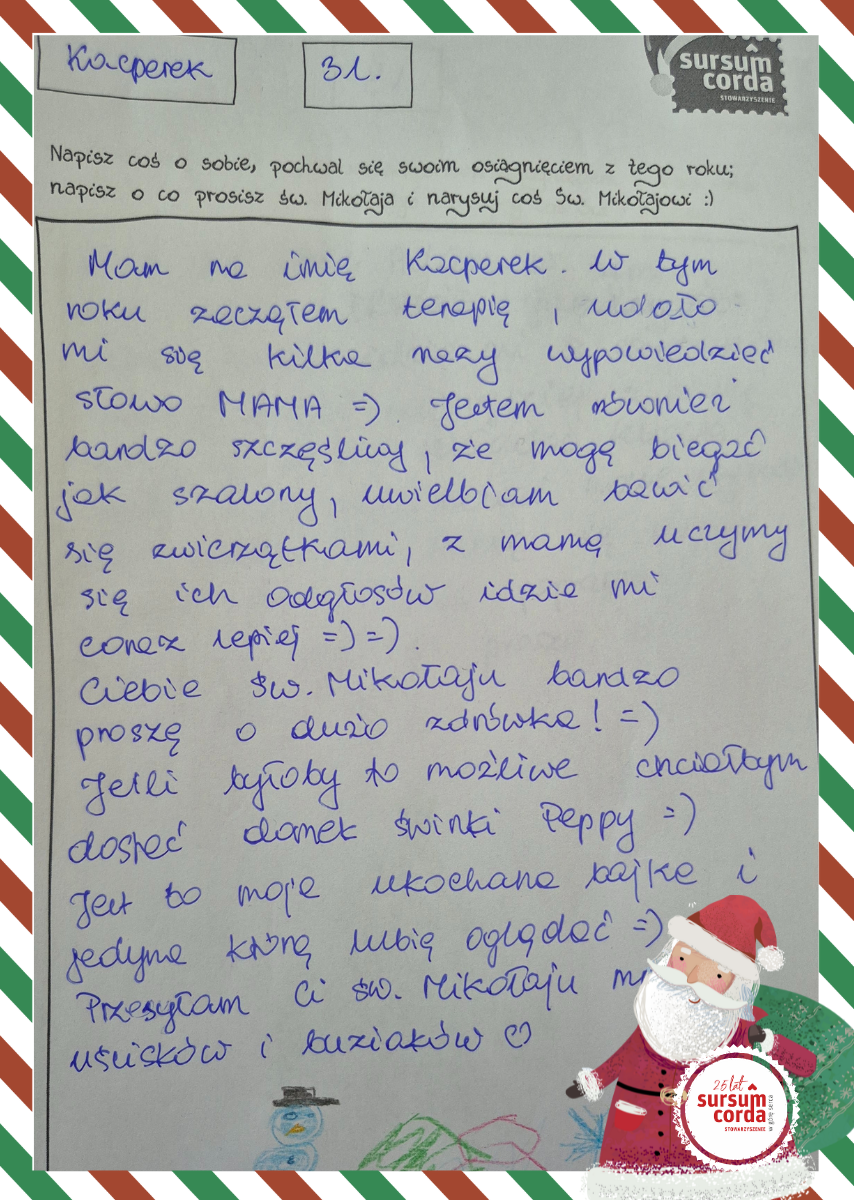 Kacperek
31.
sursum
corda
STOWARZYSZENIE
Napisz coś o sobie, pochwal się swoim osiągnięciem z tego roku;
napisz o co prosisz św. Mikołaja i narysuj coś Św. Mikołajowi :)
Mam na imię Kacperek. W tym
roku zacząłem terapię, udało
mi się kilka razy wypowiedzieć
słowo MAMA =) Jestem również
bardzo szczęśliwy, że mogę biegać
jak szalony, uwielbiam bawić
się zwierzątkami, z mamą uczymy
się ich odgłosów idzie mi
coraz lepiej =) =).
Ciebie Św. Mikołaju bardzo
proszę o dużo zdrówka! =)
Jeśli byłoby to możliwe chciałbym
dostać domek świnki Peppy =)
Jest to moja ukochana bajka i
jedyna którą lubię oglądać =)
Przesyłam Ci św. Mikołaju
uścisków i buziaków ♡
26 lat
sursum
corda
STOWARZYSZENIE
w górę serca